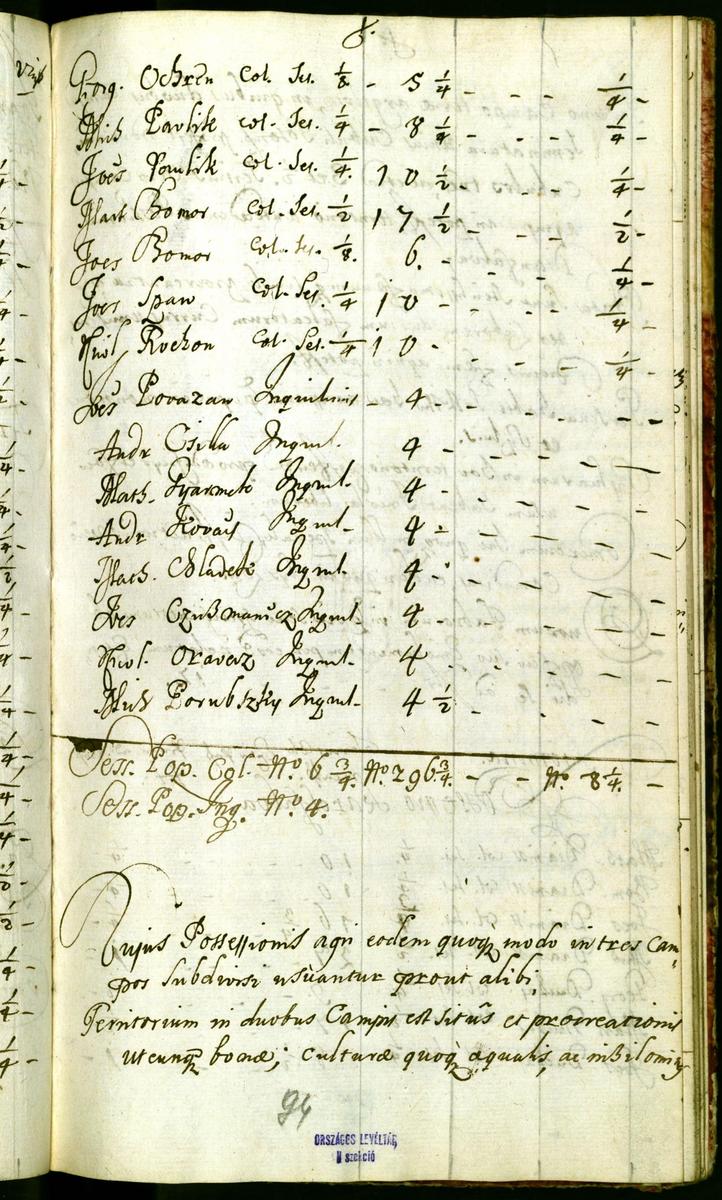 8.
Georg. Ochren Col. Ses. 1/8 - 5 1/4 - - - 1/4 -
Mich Pavlik col. Ses. 1/4 - 8 1/4 - - - 1/4 -
Joẽs Pavlik col. Ses. 1/4. 10 1/2 - - - 1/4 -
Mart Bomor Col. Ses. 1/2 17 1/2 - - - 1/2 -
Joẽs Bomor col. Ses. 1/8. 6. - - - 1/4 -
Joẽs Span Col. Ses. 1/4 10 - - - - 1/4 -
Nicol Rvchon Col. Ses. 1/4 10 - - - - 1/4 -
Joẽs Povazan Inquilinus - 4 - - - - -
Andr Csilla Inquil. 4 - - - - -
Math. Gyarmeti Inquil. 4 - - - - -
Andr Kovacs Inquil - 4 - - - - -
Math. Inquil. 4 - - - - -
Joẽs Inquil. 4 - - - - -
Nicol. Oravecz Inquil. 4 - - - - -
Mich Porubszky Inquil. 4 1/2 - - - -
Sess. Pop. Col. Nº. 6 3/4. Nº. 296 3/4. - - Nº. 8 1/4. -
Sess. Pop. Inq. Nº. 4.
Hujus Possessionis agri eodem quoqꝫ modo in tres Cam-
pos subdivisi usuantur prout alibi,
Territorium in duobus Campis est situm et procreationis
utcunqꝫ bonæ; culturæ quoqꝫ æqualis, ac nihilominus
94
ORSZÁGOS LEVÉLTÁR
II szekció